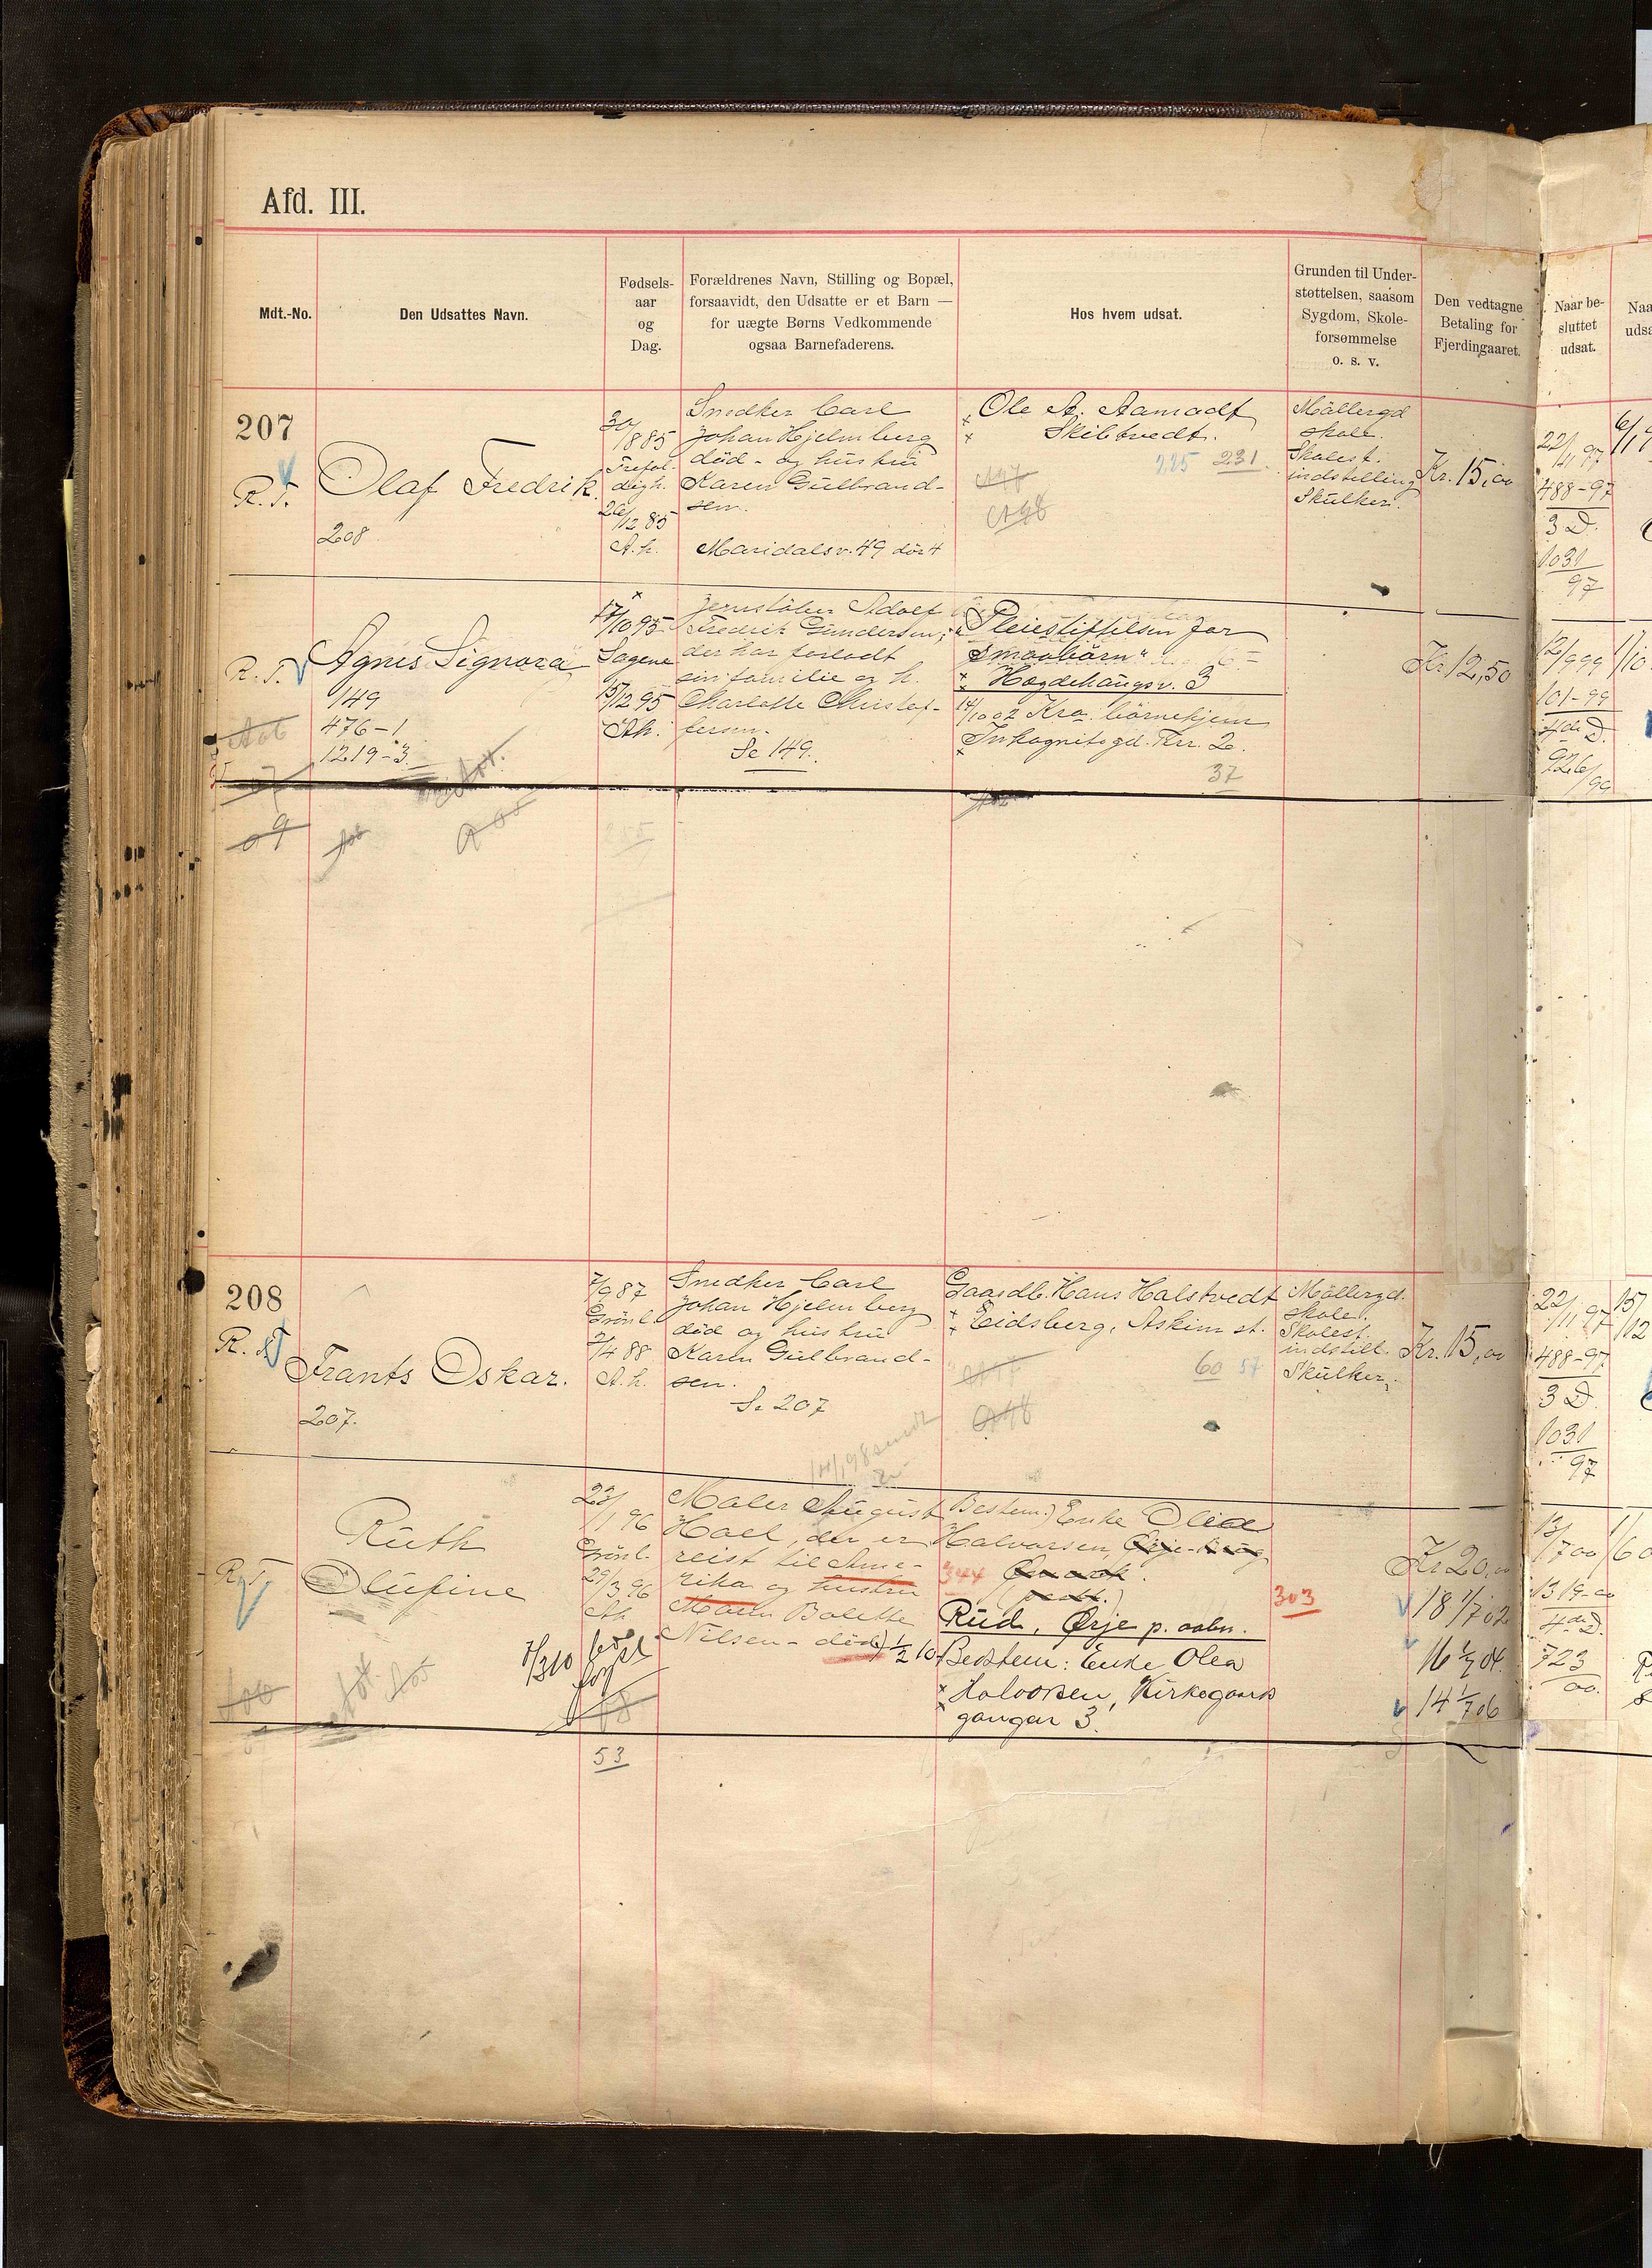 Afd. III.
Mdt.-No.
Den Udsattes Navn.
Fødsels-
aar
og
Dag.
Forældrenes Navn, Stilling og Bopæl,
forsaavidt, den Udsatte er et Barn —
for uægte Børns Vedkommende
ogsaa Barnefaderens.
Hos hvem udsat.
Grunden til Under-
støttelsen, saasom
Sygdom, Skole-
forsømmelse
o. s. v.
Den vedtagne
Betaling for
Fjerdingaaret.
Naar be-
sluttet
udsat.
Naa
udsa
207
R. T.
Olaf Fredrik.
208
30/8 85
Trefol-
digh.
26/12 85
A. h.
Snedker Carl
Johan Hjelmberg
död - og hustru
Karen Gulbrand-
sen.
Maridalsv. 49 dör 4
Ole A. Aamodt
Skibtvedt.
225 231
A 98
Möllergd
skole.
Skolest.
indstilling
Skulker.
Kr. 15,00
22/11 97
488-97
3 D.
1031
97
R. T.
Agnes Signora
149
476-1
1219-3
17/10 95
Sagene
15/12 95
Ah.
Jernstöber Adolf
Fredrik Gundersen,
der har forladt
sin familie og h.
Charlotte Christof-
fersen.
Se 149.
Pleiestiftelsen for
smaabörn"
Hægdehaugsv. 3
14/10 02 Kra. börnehjem
Inkognitogd. Trr. 2.
37
Kr 12,50
12/9 99
101-99
4de D.
926/99
09
208
R. T.
Frants Oskar.
207.
7/9 87
Grönl.
2/4 88
A. h.
Snedker Carl
Johan Hjelmberg
död og hustru
Karen Gulbrand-
sen.
Se 207
Gaardb. Hans Halstvedt
Eidsberg, Askim st.
60 57
A 98
Möllergd.
skole.
Skolest.
indstill.
Skulker.
Kr. 15,00
22/11 97
488-97
3 D.
1031
97
15/12
R. T.
Ruth
Olufine
23/1 96
Grönl.
29/3 96
Ah
Maler August
Hael, der er
reist til Ame-
rika og hustru
Maren Bolette
Nilsen - död
Bestem.) Enke Olea
Halvorsen,
344
303
Rud, Ørje p. aabn.
1/2 10 Bestem: Enke Olea
Halvorsen, Kirkegaards
gangen 3.
53
Kr 20,00
18 1/7 02
16 1/7 04.
14 1/7 06
13/7 00
1319-00
4de D.
723
00.